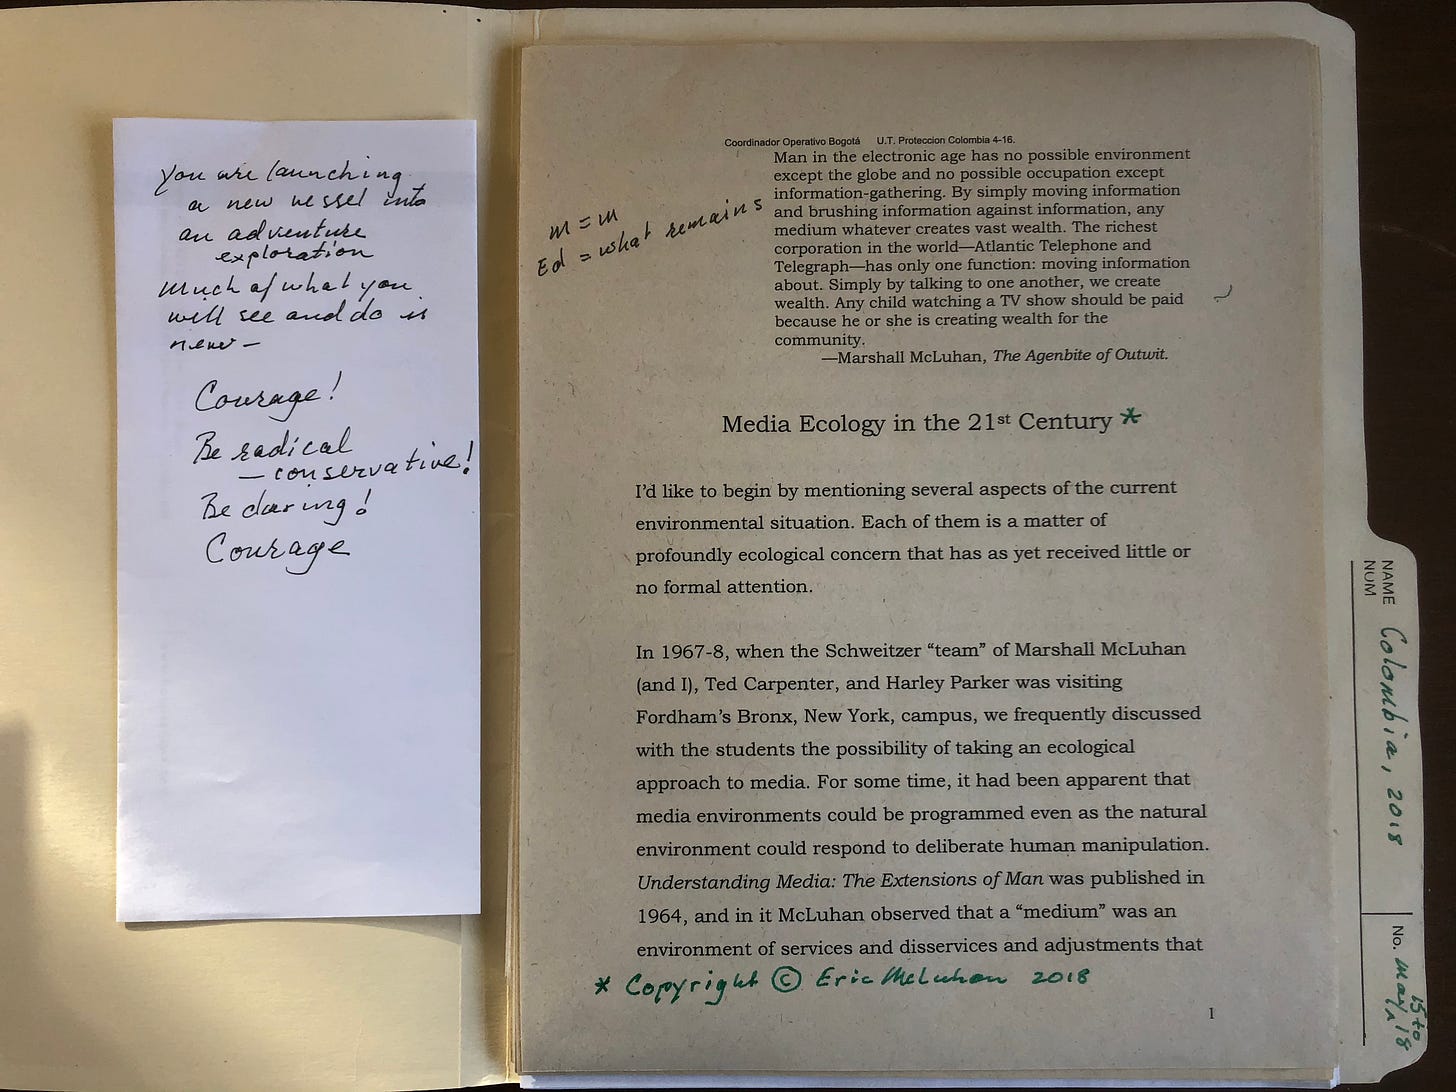 you are launching
a new vessel into
an adventure
exploration
Much of what you
will see and do is
new —
Courage!
Be radical
— conservative!
Be daring!
Courage
Coordinador Operativo Bogotá U.T. Proteccion Colombia 4-16.
Man in the electronic age has no possible environment
except the globe and no possible occupation except
information-gathering. By simply moving information
and brushing information against information, any
medium whatever creates vast wealth. The richest
corporation in the world—Atlantic Telephone and
Telegraph—has only one function: moving information
about. Simply by talking to one another, we create
wealth. Any child watching a TV show should be paid
because he or she is creating wealth for the
community.
—Marshall McLuhan, The Agenbite of Outwit.
m = m
Ed = what remains
Media Ecology in the 21st Century *
I’d like to begin by mentioning several aspects of the current
environmental situation. Each of them is a matter of
profoundly ecological concern that has as yet received little or
no formal attention.
In 1967-8, when the Schweitzer “team” of Marshall McLuhan
(and I), Ted Carpenter, and Harley Parker was visiting
Fordham’s Bronx, New York, campus, we frequently discussed
with the students the possibility of taking an ecological
approach to media. For some time, it had been apparent that
media environments could be programmed even as the natural
environment could respond to deliberate human manipulation.
Understanding Media: The Extensions of Man was published in
1964, and in it McLuhan observed that a “medium” was an
environment of services and disservices and adjustments that
* Copyright © Eric McLuhan 2018
1
NAME Colombia, 2018
NUM
No. May 15 to 18